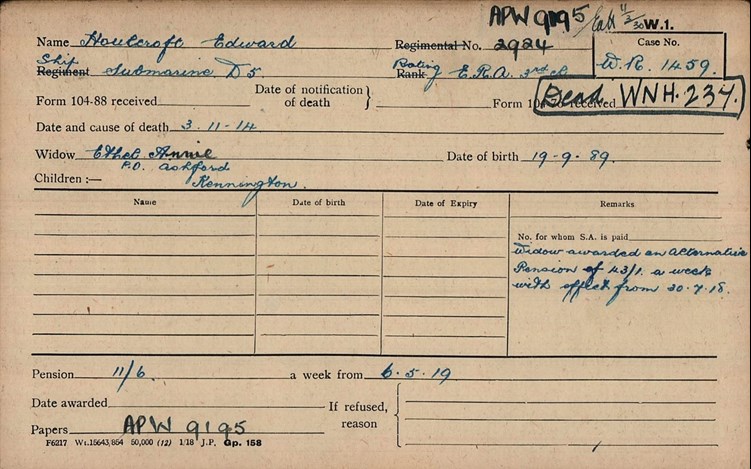 APW 9195 W.1.
Name Houlcroft Edward Regimental No. 2924 Case No.
Ship Rating W.R. 1459.
Regiment Submarine D5 Rank E.R.A. 3rd
Form 104-88 received Date of notification of death } Form received Dead WNH. 237.
Date and cause of death 3.11-14
Widow Ethel Annie Date of birth 19-9.89.
P.O. Ashford
Children :— Kennington.
Name Date of birth Date of Expiry Remarks
No. for whom S.A. is paid
Widow awarded an Alternative
Pension of 43/1. a week
with effect from 30.7.18.
Pension 11/6. a week from 6.5.19
Date awarded If refused, reason
Papers APW 9195
F6217 Wt.15643/854 50,000 (12) 1/18 J.P. Gp. 158